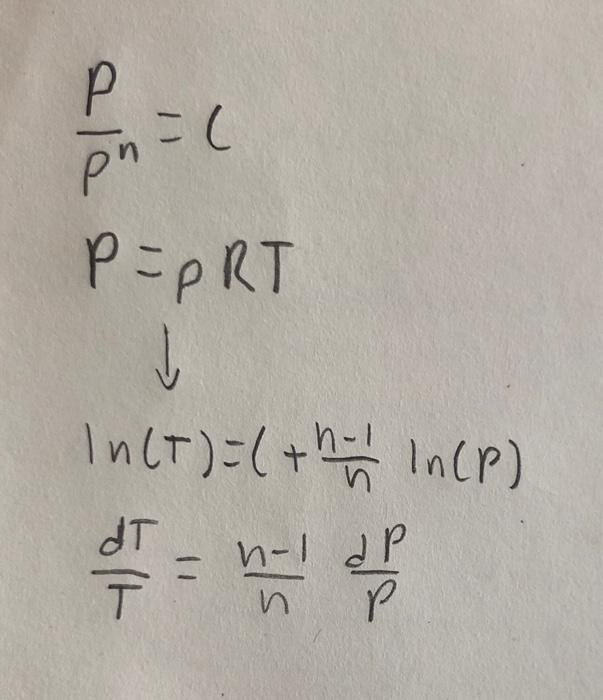 P/ρⁿ = C
P = ρRT
↓
ln(T) = C + n-1/n ln(P)
dT/T = n-1/n dP/P